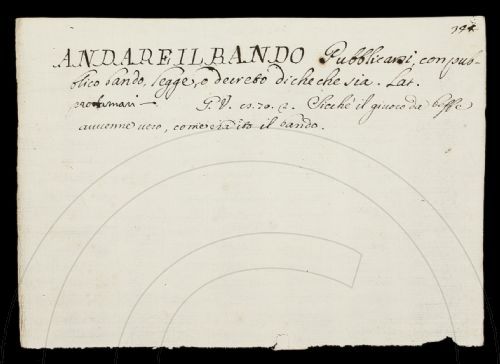 394.
ANDARE IL BANDO Pubblicarsi, con pub-
blico bando, legge, o decreto di che che sia. Lat.
proclamari — G.V. 10. 70. 2. Sicchè il giuoco da beffe
avvenne vero, come era ito il bando.